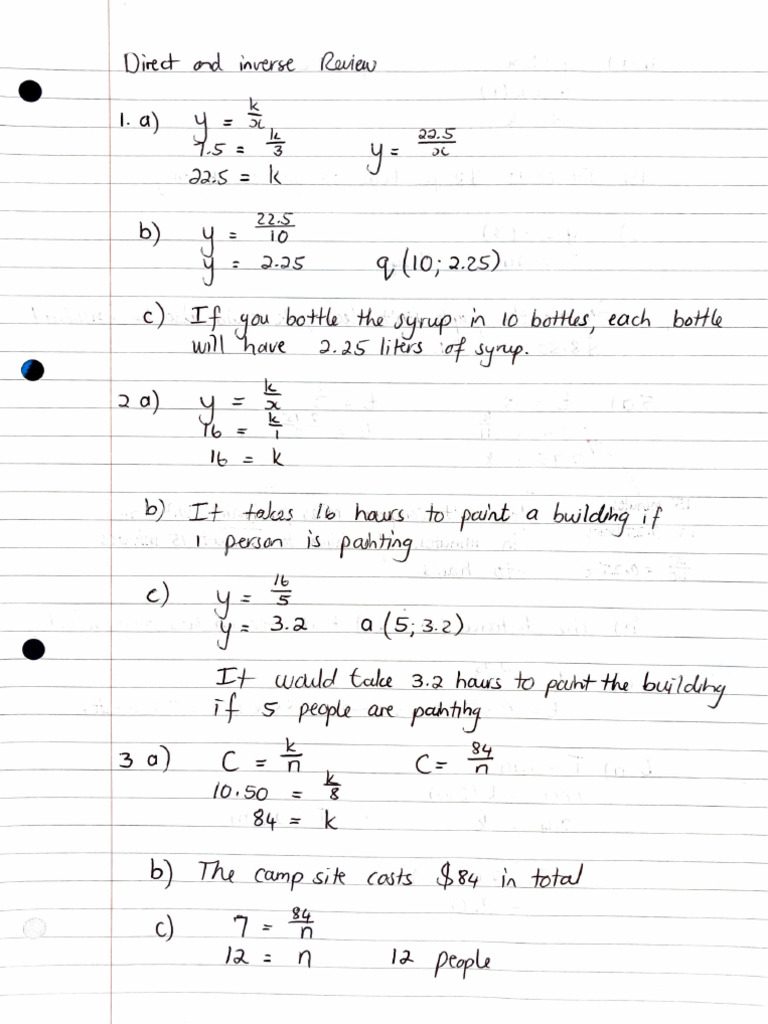 Direct and inverse Review
1. a) y = k/x
7.5 = k/3 y = 22.5/x
22.5 = k
b) y = 22.5/10
y = 2.25 q (10; 2.25)
c) If you bottle the syrup in 10 bottles, each bottle
will have 2.25 liters of syrup.
2 a) y = k/x
16 = k/1
16 = k
b) It takes 16 hours to paint a building if
1 person is painting
c) y = 16/5
y = 3.2 a (5; 3.2)
It would take 3.2 hours to paint the building
if 5 people are painting
3 a) C = k/n C = 84/n
10.50 = k/8
84 = k
b) The camp site costs $84 in total
c) 7 = 84/n
12 = n 12 people